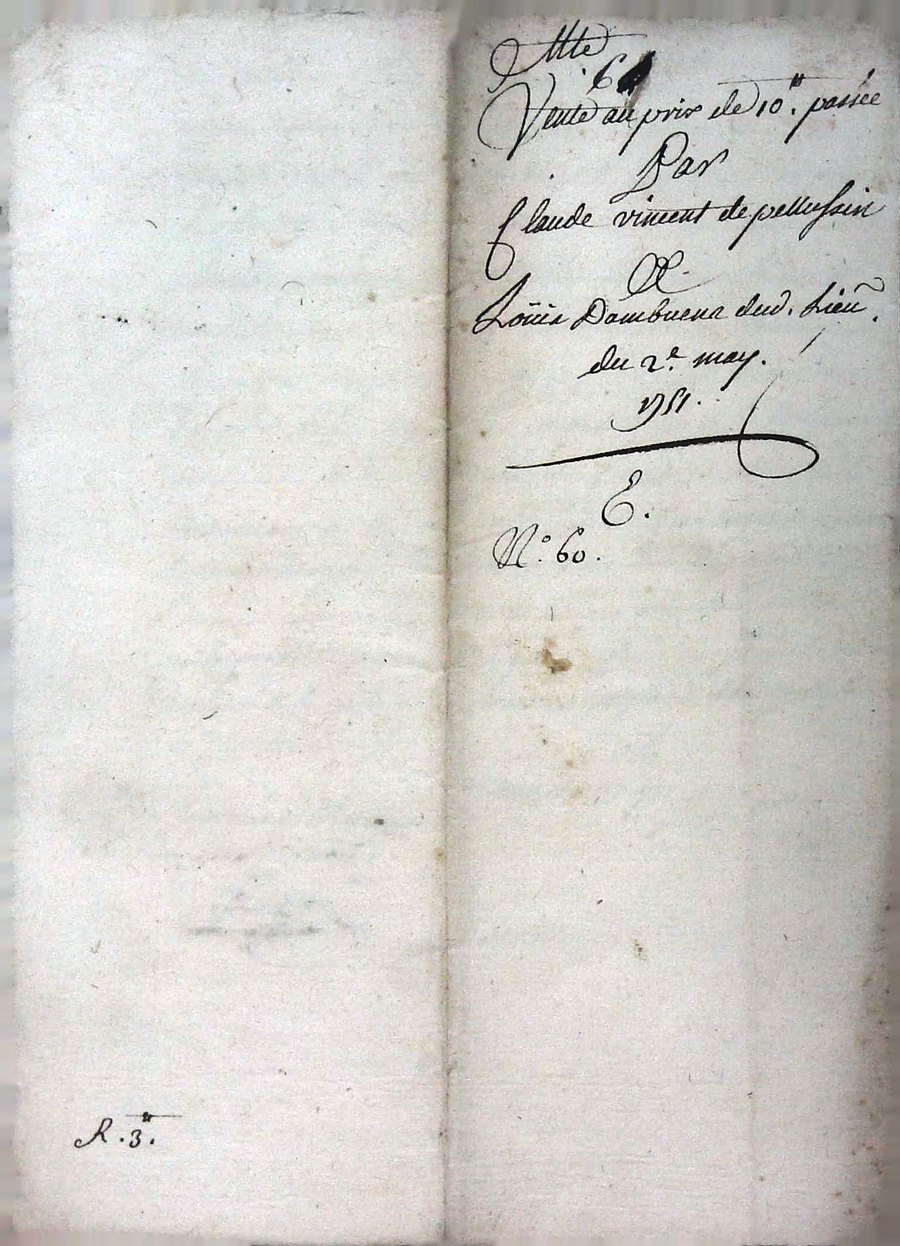 6
Vente au prix de 10ᵗᵗ. passée
Par
Claude vincent de pellussin
A
Loüis Dambuent dud. Lieu.
du 2ᵉ. may.
1751.
E.
N.º 60.
R. 3ᵗᵗ.